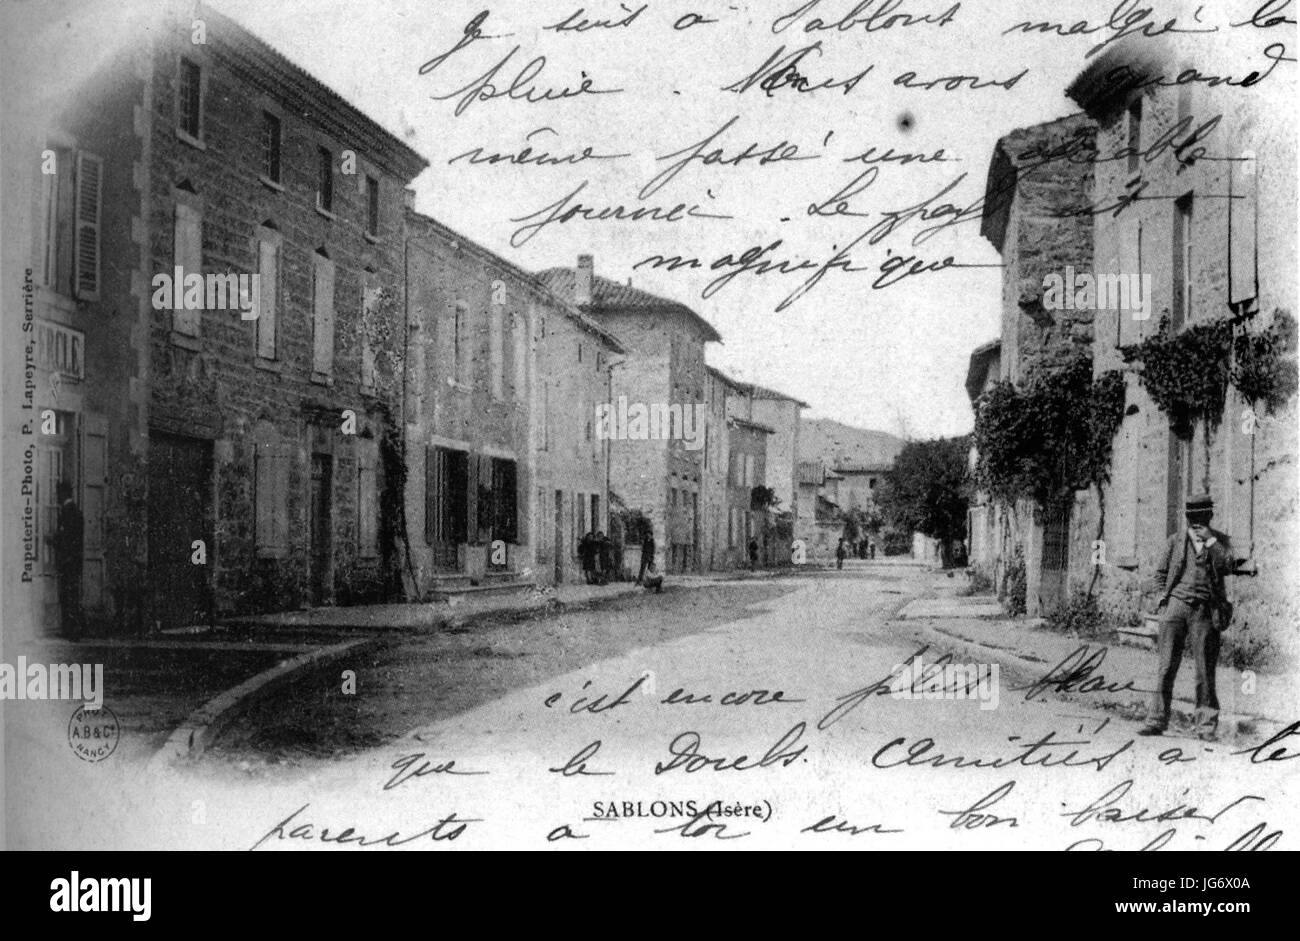 Je suis à Sablons malgré la
pluie. Nous avons quand
même passé une agréable
journée. Le pays est
magnifique
c'est encore plus beau
que le Doubs. Amitiés à tes
parents à toi un bon baiser
SABLONS (Isère)
Papeterie-Photo, P. Lapeyre, Serrière
ERCLE
PHOT
A.B&Cie
NANCY
a
alamy stock photo
JG6X0A
www.alamy.com